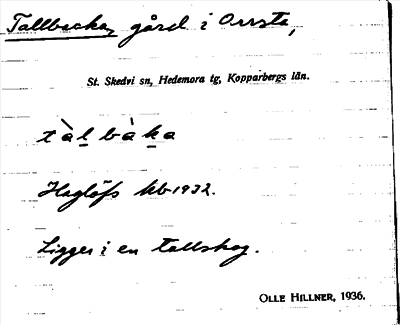 Tallbacka, gård i Orrsta,
St. Skedvi sn, Hedemora tg, Kopparbergs län.
tàl bàka
Haglöfs kb 1932.
Ligger i en tallskog.
OLLE HILLNER, 1936.